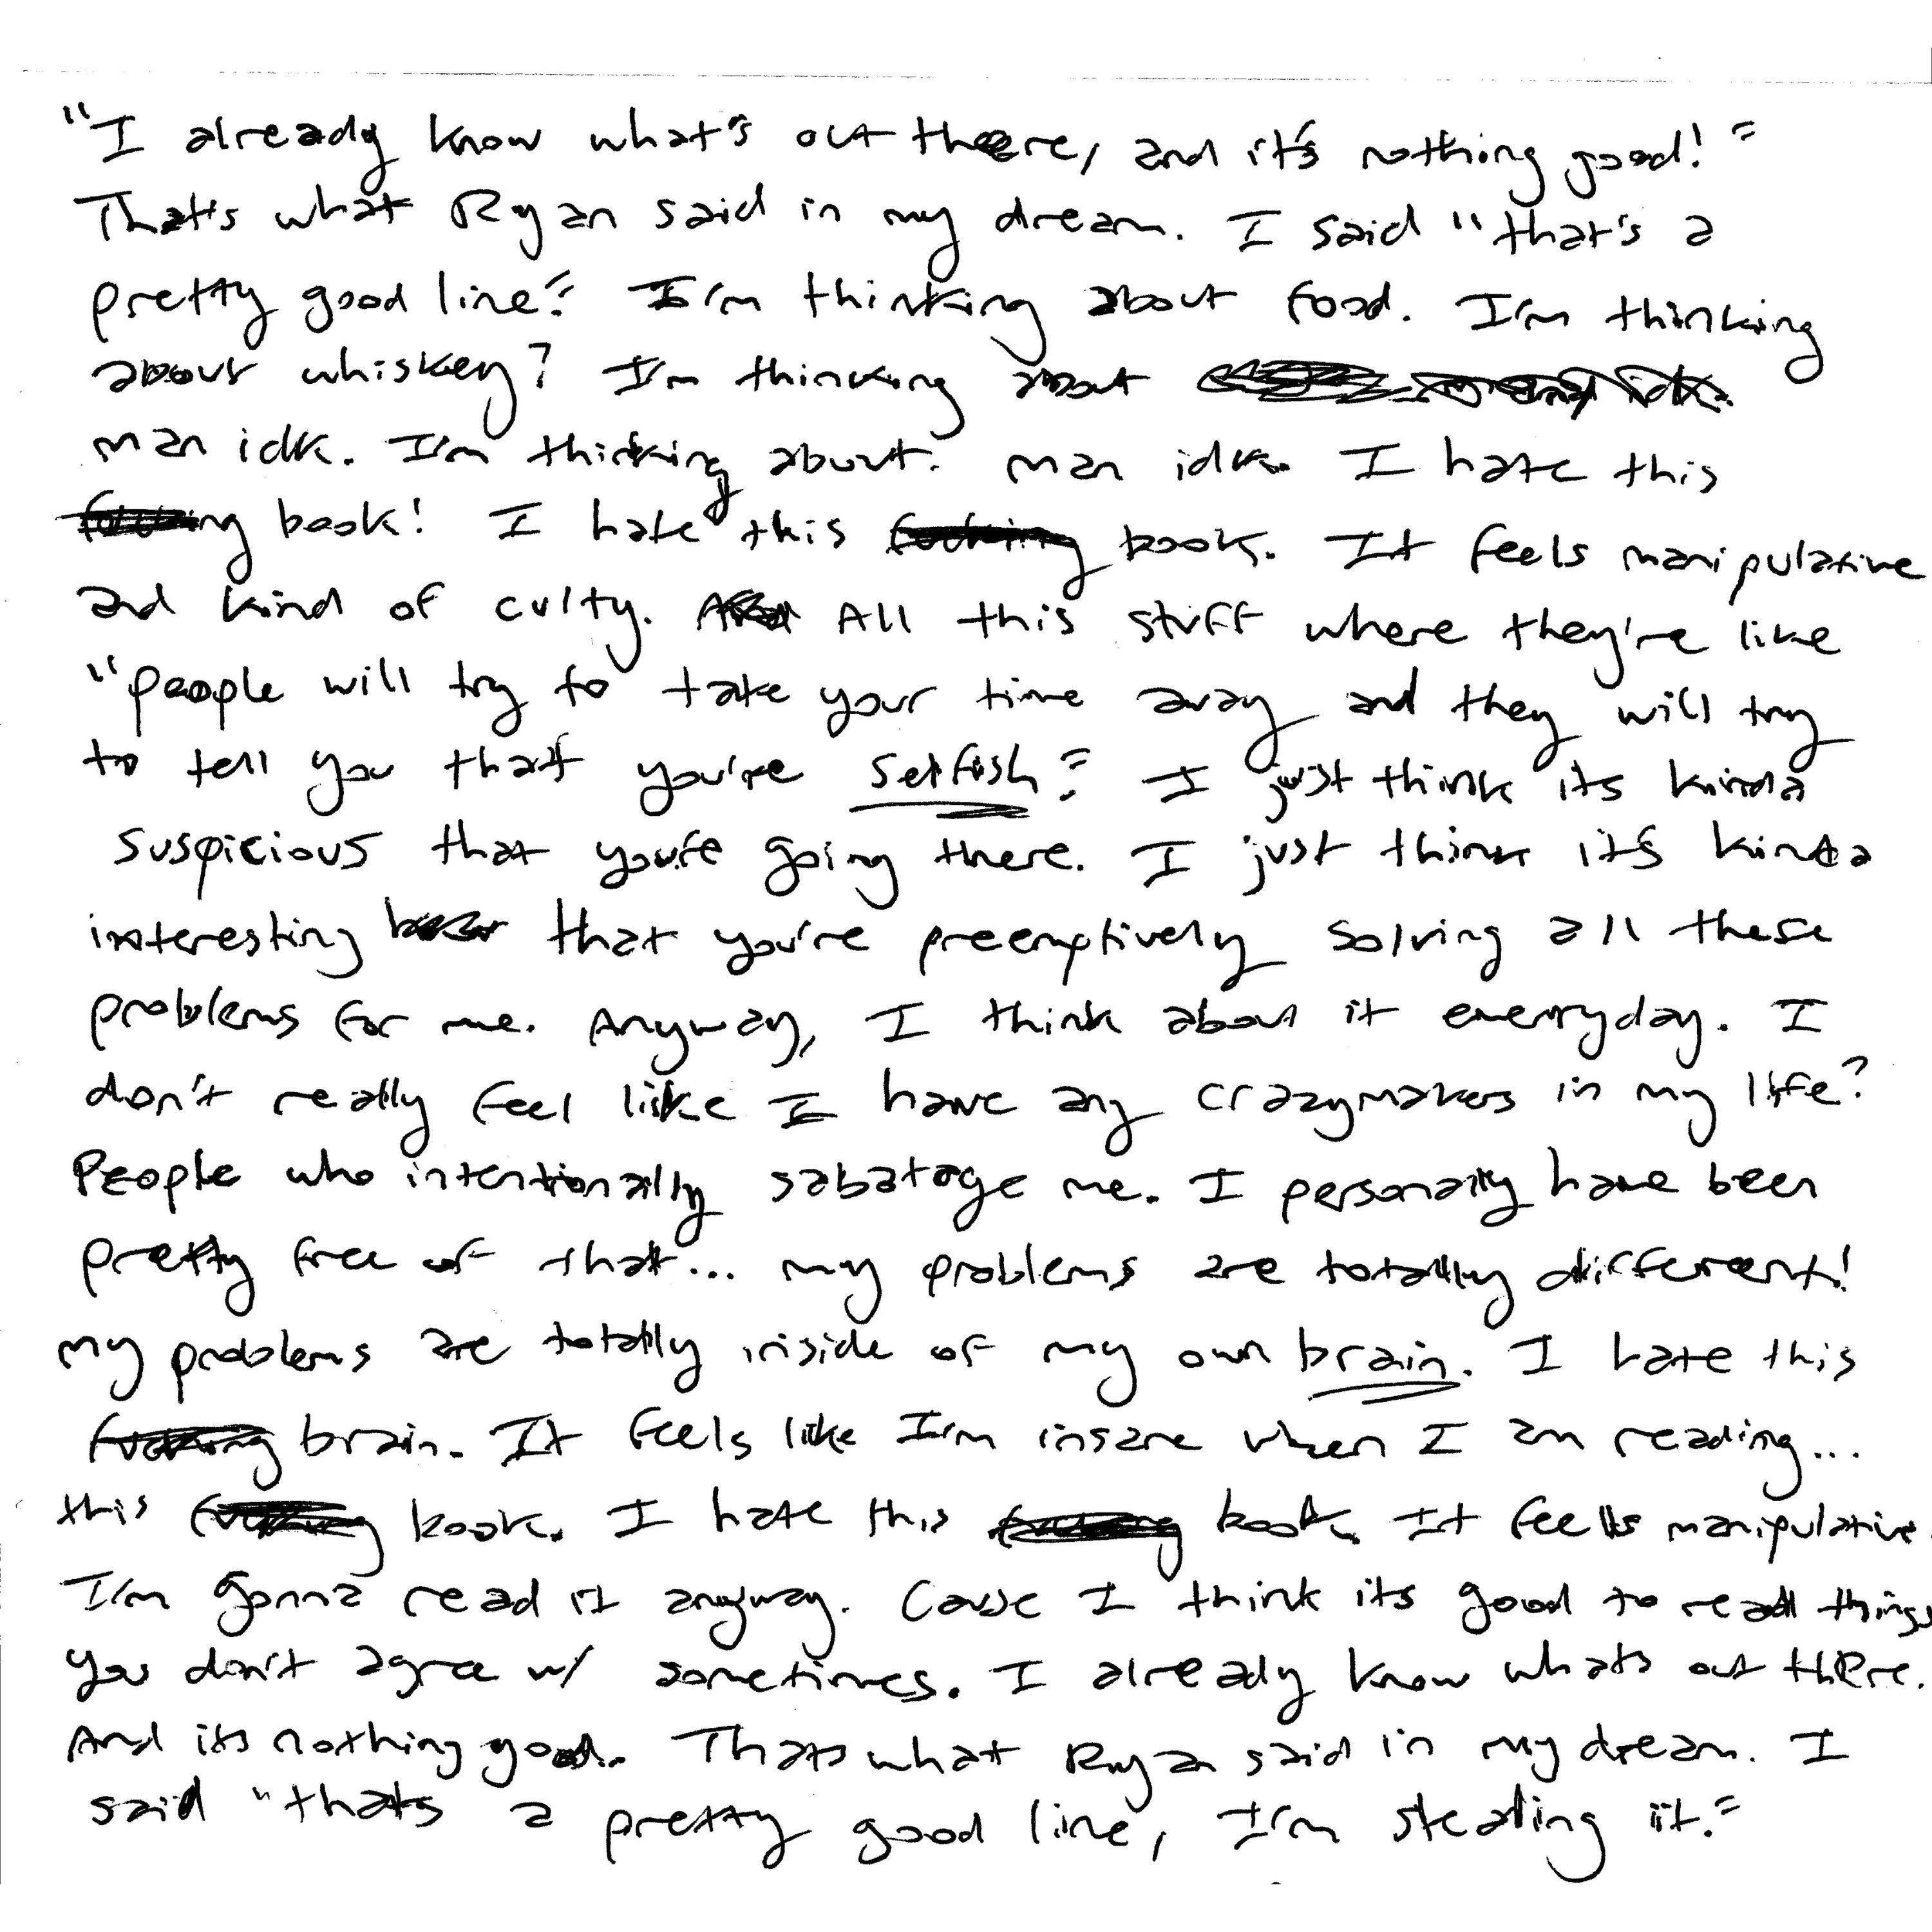 "I already know what's out there, and it's nothing good!"
That's what Ryan said in my dream. I said "that's a
pretty good line." I'm thinking about food. I'm thinking
about whiskey? I'm thinking about
man idk. I'm thinking about. man idk. I hate this
fucking book! I hate this fucking book. It feels manipulative
and kind of culty. All this stuff where they're like
"people will try to take your time away and they will try
to tell you that you're selfish." I just think its kinda
suspicious that you're going there. I just think it's kinda
interesting that you're preemptively solving all these
problems for me. Anyway, I think about it everyday. I
don't really feel like I have any crazymakers in my life?
People who intentionally sabatoge me. I personally have been
pretty free of that... my problems are totally different!
my problems are totally inside of my own brain. I hate this
fucking brain. It feels like I'm insane when I am reading...
this fucking book. I hate this fucking book. It feels manipulative.
I'm gonna read it anyway. Cause I think its good to read things
you don't agree w/ sometimes. I already know whats out there.
And its nothing good. Thats what Ryan said in my dream. I
said "thats a pretty good line, I'm stealing it."